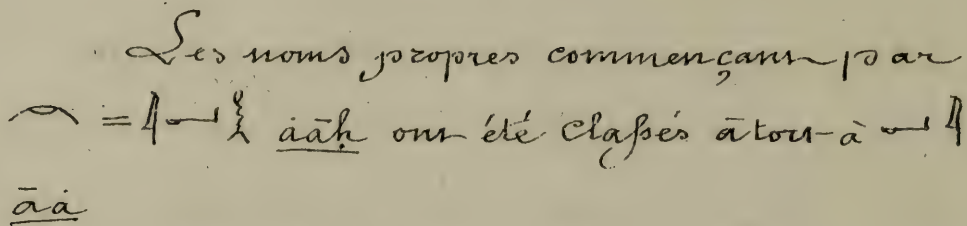 Les noms propres commençant par
𓇹 = 𓇋𓂝𓎛 ȧāḥ ont été classés à tort à 𓂝𓇋
āȧ